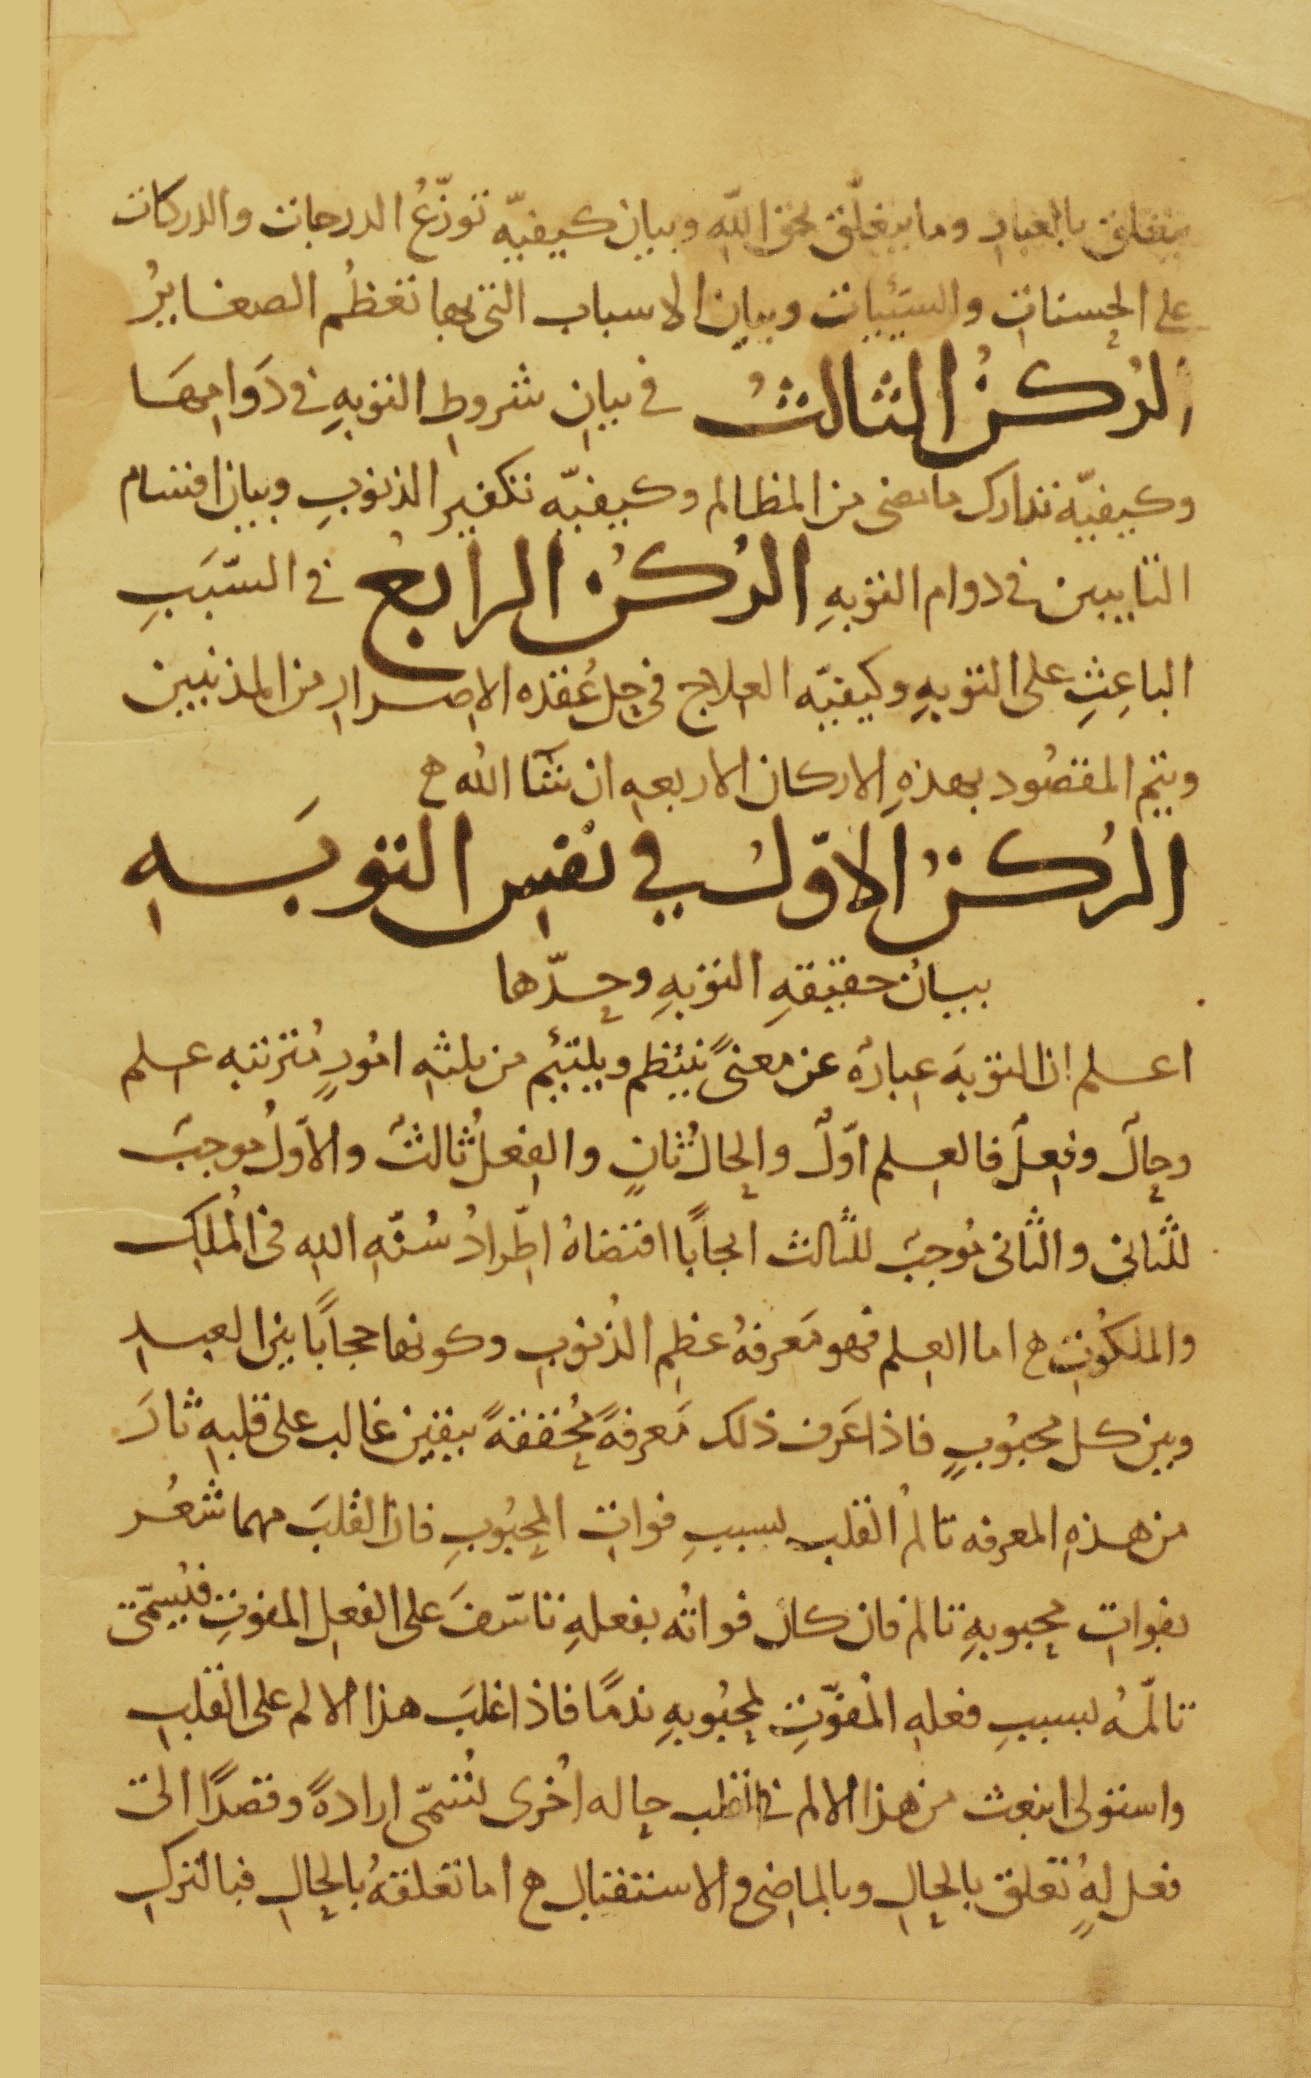 يتعلق بالعبادِ وما يتعلّق بحق اللهِ وبيان كيفيّه توزّعُ الدرجات والدركات
على الحسناتِ والسيّئاتِ وبيان الاسباب التى بها تعظُم الصغايرُ
الرُكنُ الثالثُ فى بيانِ شروطِ التوبهِ فى دَوَامِهَا
وكيفيّه تدارك ما مضى من المظالم وكيفيّه تكفير الذنوبِ وبيان اقسام
التايبين فى دوام التوبهِ الرُكنُ الرابعُ فى السّبَبِ
الباعِثِ على التوبهِ وكيفيّه العلاج فى حل عُقده الاصرارِ من المذنبين
ويتم المقصُود بهذهِ الاركان الاربعه ان شَآ اللهُ ه
الرُكنُ الاوّلُ فى نفسِ التوبَهِ
بيانُ حقيقهِ التوبهِ وحدّها
اعلم ان التوبهَ عبارهٌ عن معنىً ينتظم ويلتئِم من ثلثهِ امُورٍ مُترتبه علم
وحالٌ وفعلٌ فالعلم اوّلٌ والحالُ ثانٍ والفعلُ ثالثٌ والاوّلُ موجبٌ
للثانى والثانى مُوجبٌ للثالث ايجابًا اقتضاهُ اطّرادُ سُنّهِ اللهِ فى المُلكِ
والملكُوتِ ه اما العلم فهو مَعرفهُ عظمِ الذُنوبِ وكونها حجابًا بين العبدِ
وبين كل محبُوبٍ فاذا عَرف ذلك مَعرفهً مُحققهً بيقين غالب على قلبهِ ثارَ
من هذهِ المعرفه تالمُ القلبِ بسببِ فواتِ المحبُوبِ فان القلبَ مهما شعُر
بفواتِ محبوبهِ تالم فان كان فواتُه بفعلهِ تاسّفَ على الفعلِ المفوتِ فيُسمّى
تالّمُه بسببِ فعلهِ المُفوّتِ لمحبُوبهِ ندمًا فاذا غلبَ هذا الالم على القلبِ
واستولى انبعث من هذا الالم فى القلب حاله اُخرى تُسمّى ارادهً وقصدًا الى
فعل لهُ تعلق بالحالِ وبالماضِى والاستقبالِ ه اما تعلقهُ بالحالِ فبالتركِ